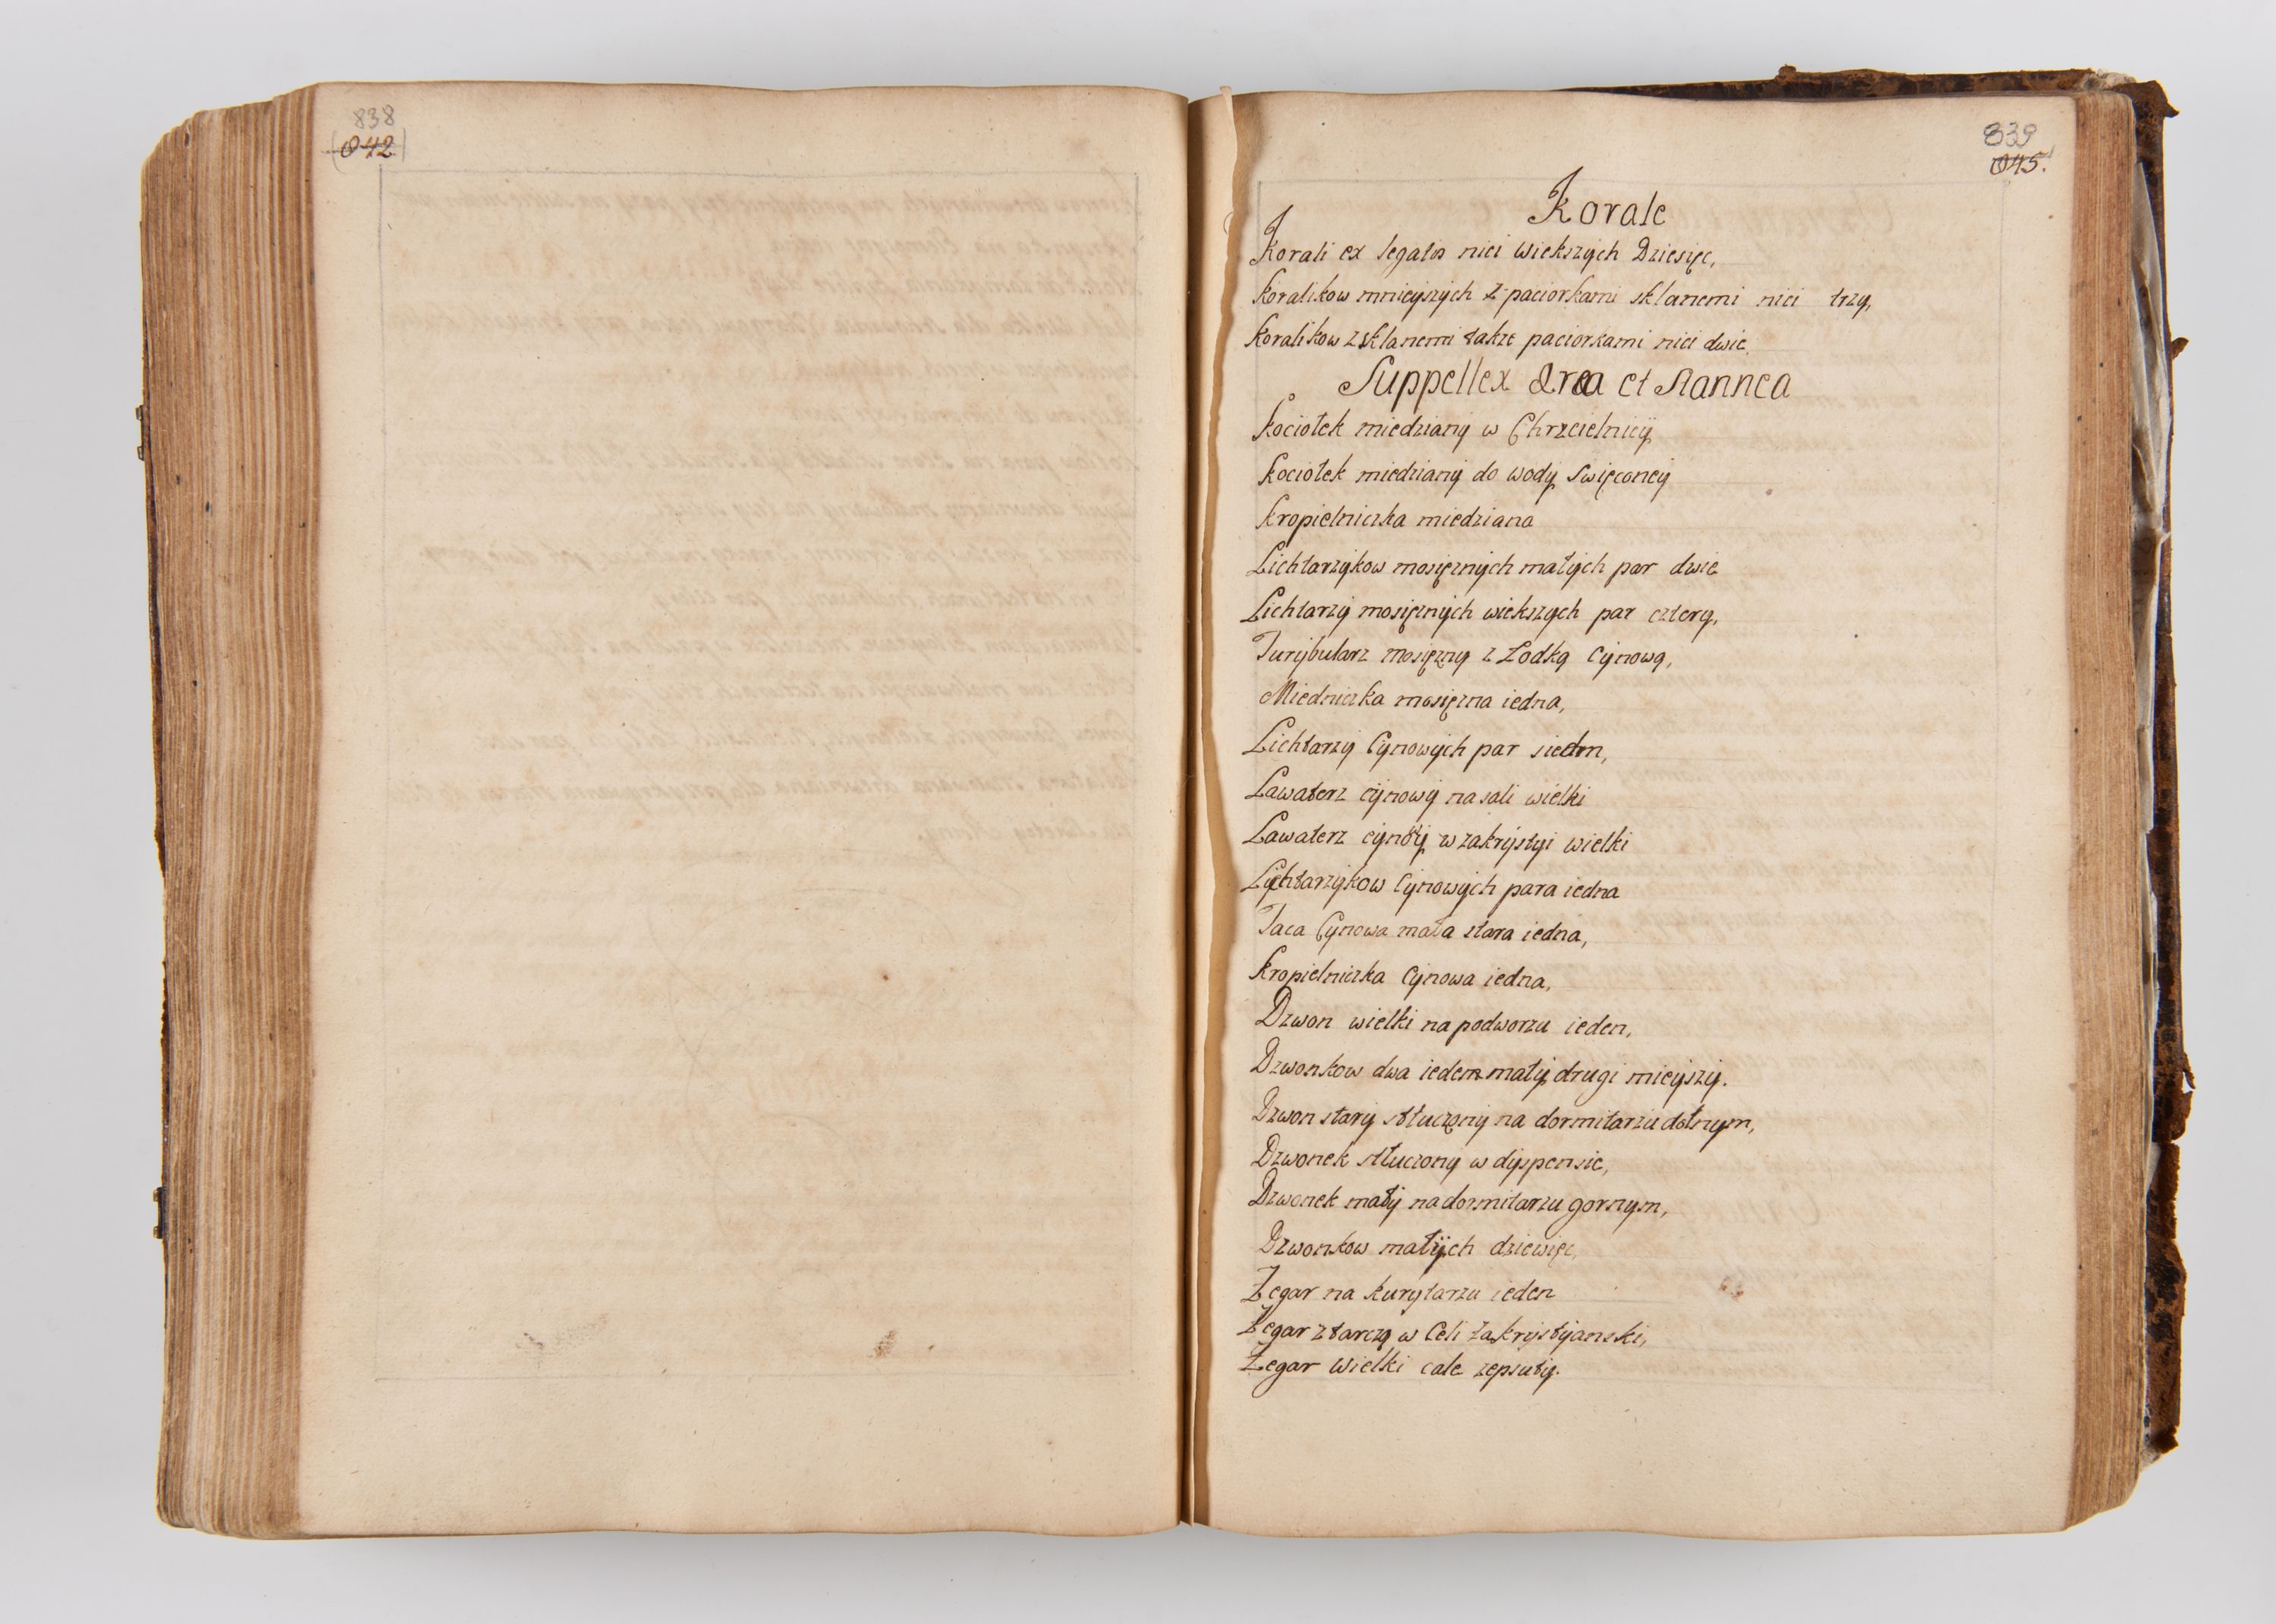 838
842
839
845.
Korale
Korali ex legatis nici wiekszych Dziesięc,
Koralikow mnieyszych z paciorkami sklanemi nici trzy,
Koralikow z sklanemi takze paciorkami nici dwie.
Suppellex Ærea et Stannea
Kociołek miedziany w Chrzcielnicy
Kociołek miedziany do wody swięconey
Kropielniczka miedziana
Lichtarzykow mosięznych małych par dwie
Lichtarzy mosięznych wiekszych par cztery,
Turybularz mosięzny z Łodką Cynową,
Miedniczka mosięzna iedna,
Lichtarzy Cynowych par siedm,
Lawaterz cynowy na sali wielki
Lawaterz cynowy w zakrystyi wielki
Lychtarzykow Cynowych para iedna
Taca Cynowa mała stara iedna,
Kropielniczka Cynowa iedna,
Dzwon wielki na podworzu ieden,
Dzwonkow dwa ieden mały drugi mieyszy.
Dzwon stary stłuczony na dormitarzu dolnym,
Dzwonek stłuczony w dyspensie,
Dzwonek mały na dormitarzu gornym,
Dzwonkow małych dziewięc,
Zegar na kurytarzu ieden
Zegar z tarczą w Celi zakrystyanski,
Zegar wielki cale zepsuty.